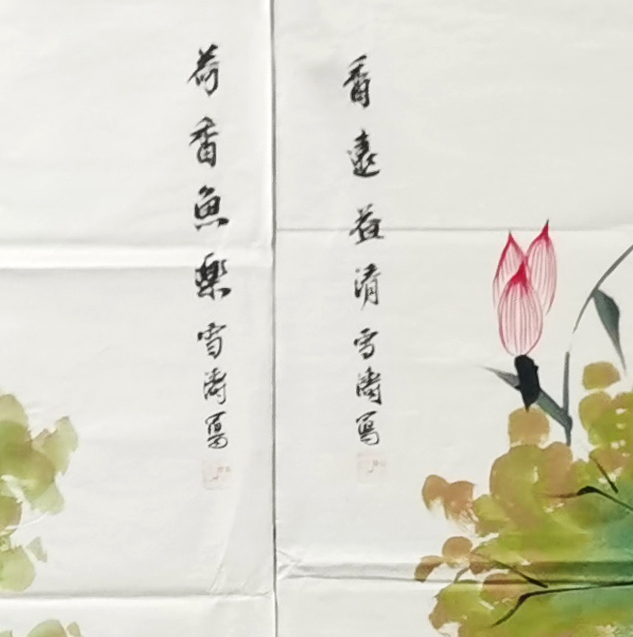 香遠益清雪濤寫
荷香魚樂雪濤寫